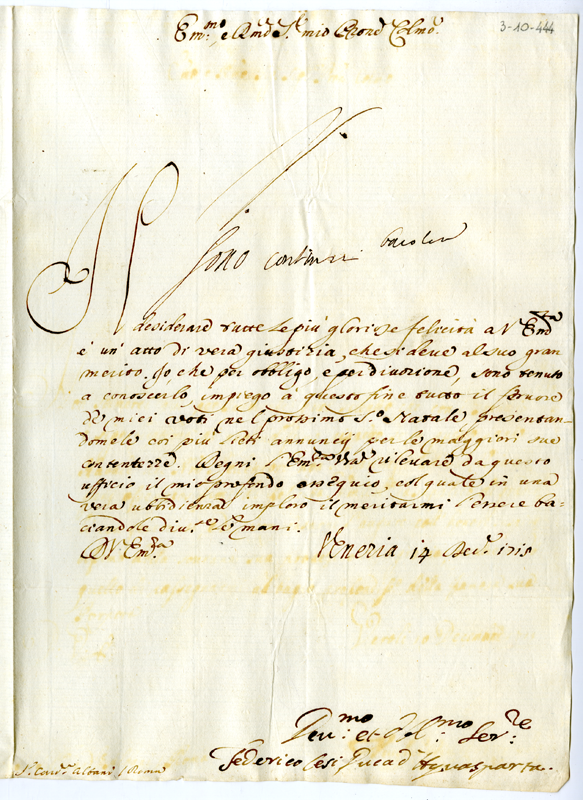 3-10-444
Em:mo, e Rmo Sr mio Pron Colmo
Sono
Il desiderare tutte le più gloriose felicità a V Em.za
è un' atto di vera giustizia, che si deve al suo gran
merito. Io che per obbligo e per divozione, sono tenuto
a conoscerlo, impiego à questo fine tutto il fervore
de miei voti nel prossimo S.o Natale presentan-
domele coi più lieti annuncij per le maggiori sue
contentezze. Degni l'Em.za Vra rilevare da questo
ufficio il mio profondo ossequio, col quale in una
vera ubbidienza imploro il meritarmi l'essere ba-
ciandole div.te le mani.
D V Em.za Venezia 14 Dec.e 1715
Dev:mo et Obl:mo Ser:re
Federico Cesi Duca d'Acquasparta
Sr Card.e Albani / Roma